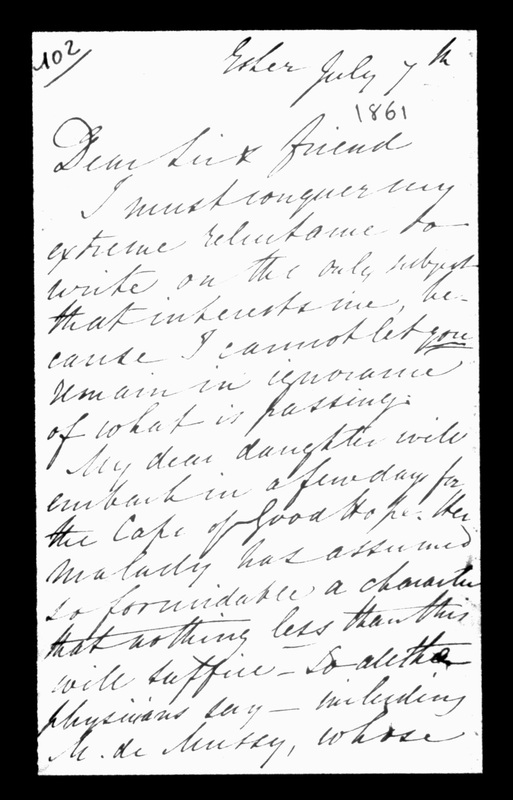 102
Esher July 7th
1861
Dear Sir & friend
I must conquer my
extreme reluctance to
write on the only subject
that interests me, be-
cause I cannot let you
remain in ignorance
of what is passing.
My dear daughter will
embark in a few days for
the Cape of Good Hope. Her
malady has assumed
so formidable a character
that nothing less than this
will suffice - So all the
physicians say - including
M. de Mussy, whose